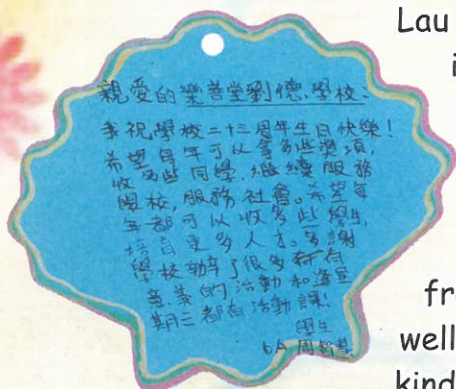 Lau
親愛的樂善堂劉德學校、
我祝學校二十三周年生日快樂!
希望每年可以拿多些獎項,
收多些同學,繼續服務
學校,服務社會。希望每
年都可以收多些學生,
培育更多人才。多謝
學校辦了很多有
意義的活動和逢星
期三都有活動課!
學生
6A 周
well
kind